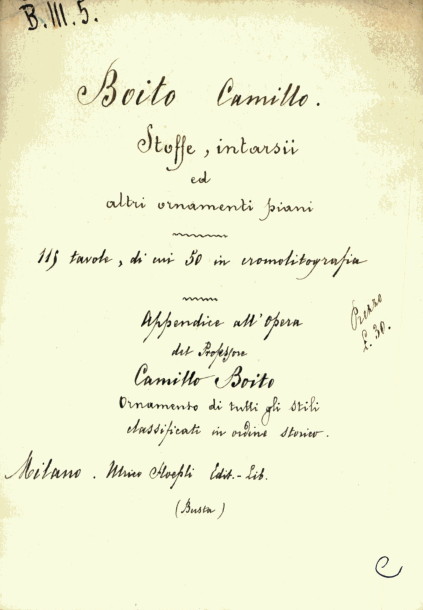 B.III.5.
Boito Camillo.
Stoffe, intarsii
ed
altri ornamenti piani
115 tavole, di cui 50 in cromolitografia
Prezzo
£. 30.
Appendice all'Opera
del Professore
Camillo Boito
Ornamento di tutti gli stili
classificati in ordine storico.
Milano. Ulrico Hoepli Edit.-Lib.
(Busta)
C